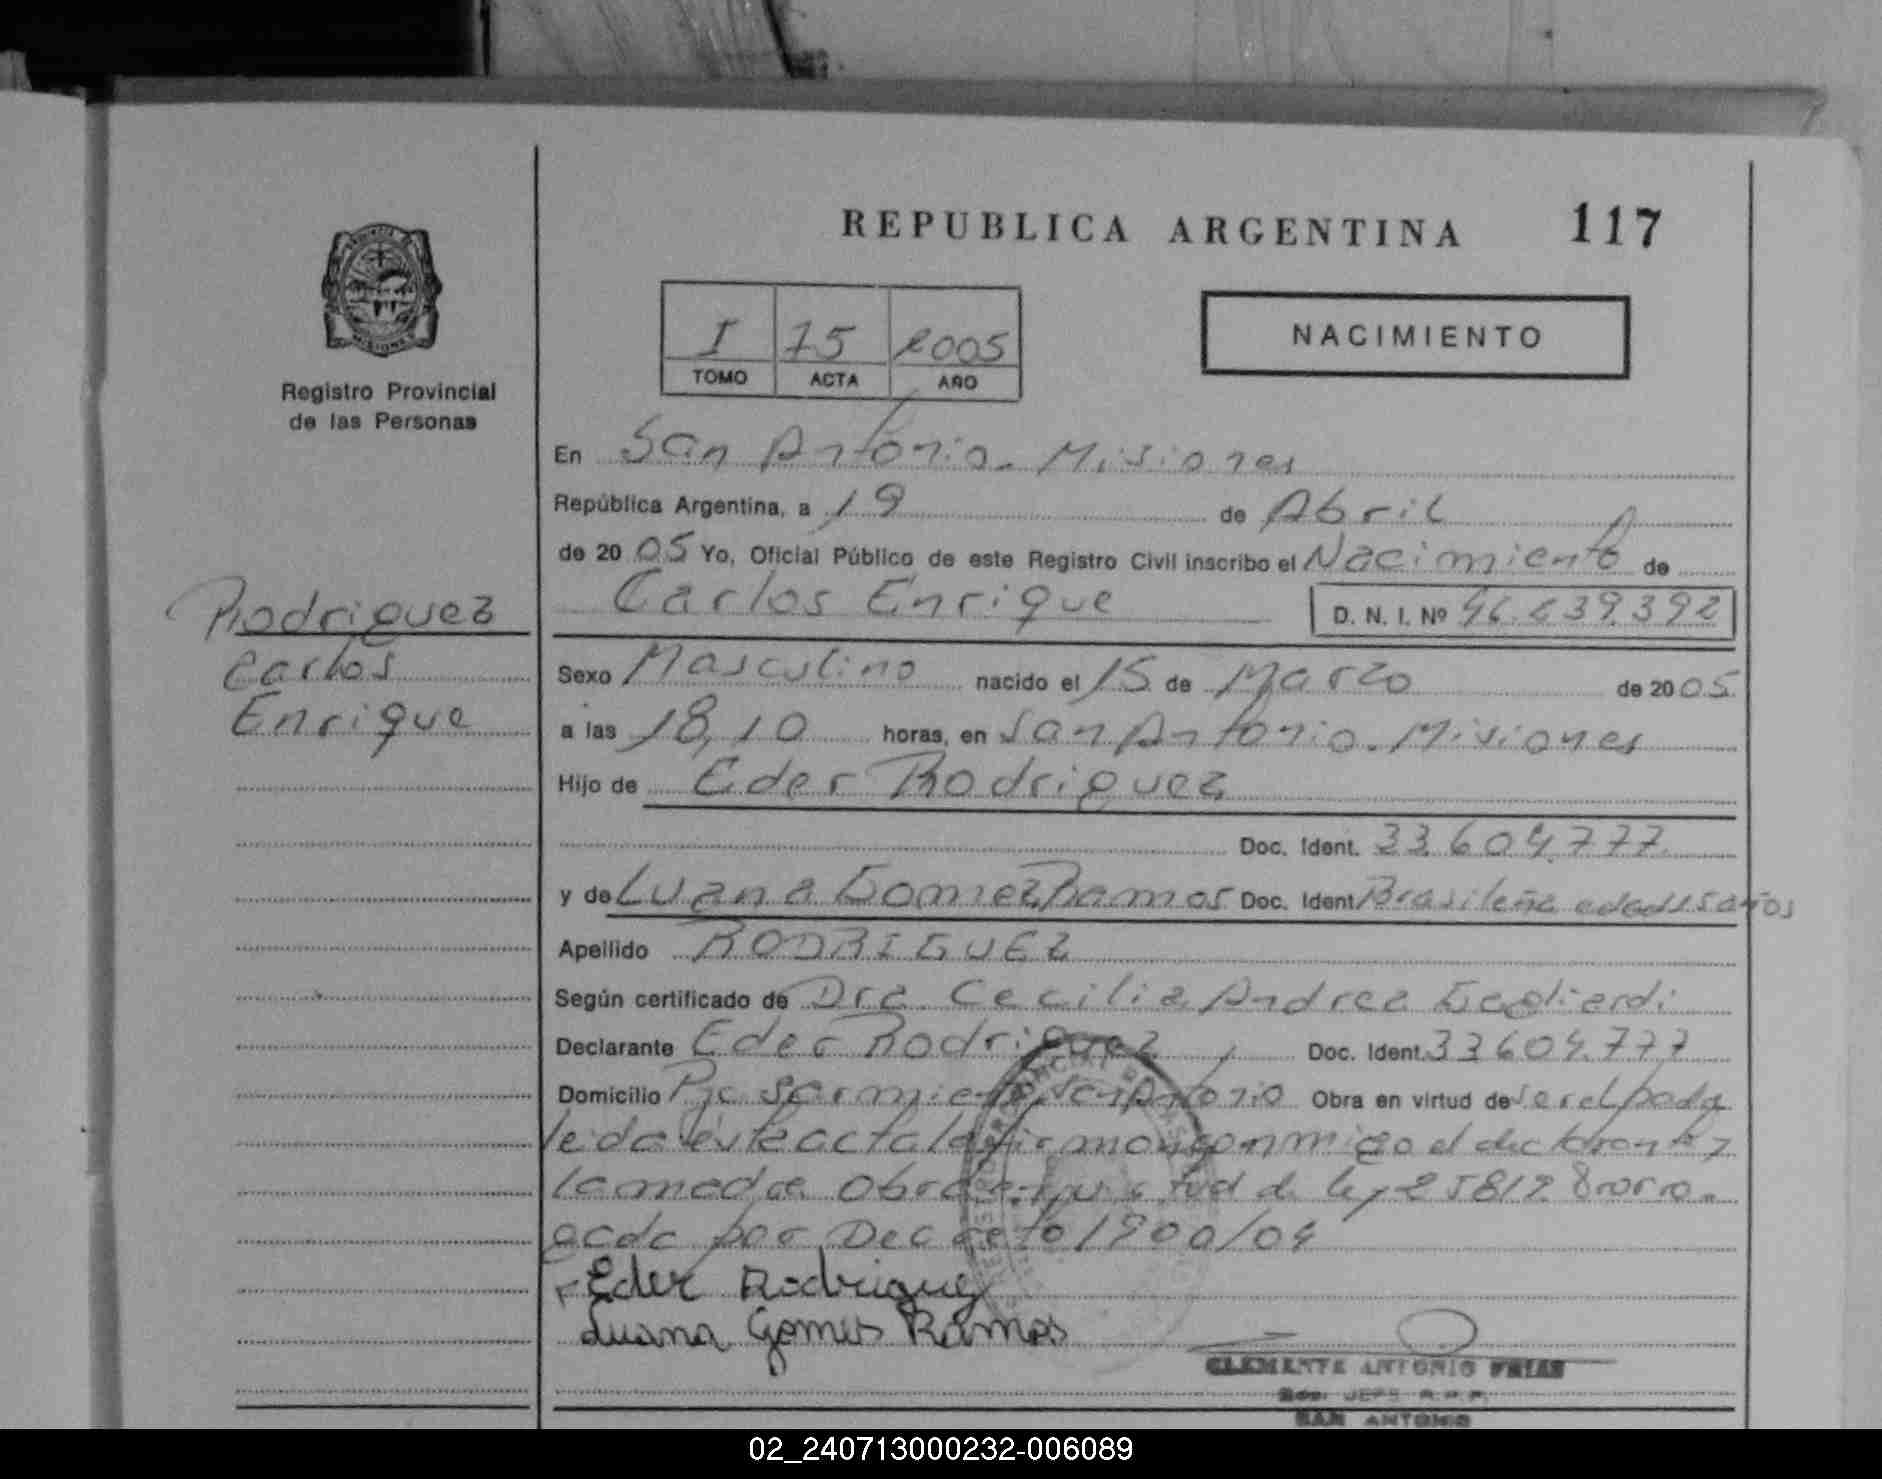 REPUBLICA ARGENTINA 117
I 75 2005
TOMO ACTA AÑO
NACIMIENTO
PROVINCIA DE MISIONES
Registro Provincial
de las Personas
En San Antonio. Misiones
República Argentina, a 19 de Abril
de 20 05 Yo, Oficial Público de este Registro Civil inscribo el Nacimiento de
Carlos Enrique D. N. I. Nº 46.439.392
Rodriguez
Carlos
Enrique
Sexo Masculino nacido el 15 de Marzo de 20 05
a las 18,10 horas, en San Antonio. Misiones
Hijo de Eder Rodriguez
Doc. Ident. 33.604.777
y de Luana Gomez Ramos Doc. Ident Brasileña edad 15 años
Apellido RODRIGUEZ
Según certificado de Dra. Cecilia Andrea Gagliardi
Declarante Eder Rodriguez Doc. Ident. 33.604.777
Domicilio Pje Sarmiento San Antonio Obra en virtud de ser el padre
leida este acta la firman conmigo el declarante y
la madre Obra en virtud de ley 25819 Prorro-
gada por Decreto 1900/04
Eder Rodriguez
Luana Gomes Ramos
CLEMENTE ANTONIO FRIAS
SAN ANTONIO
02_240713000232-006089